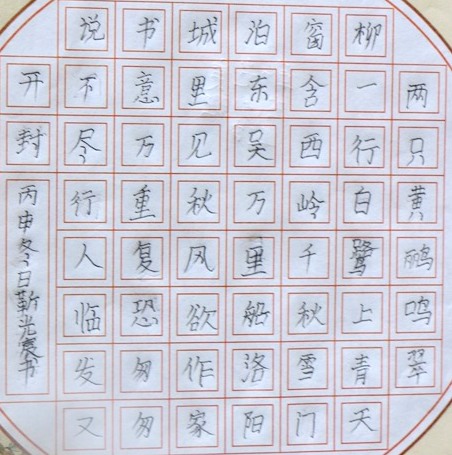 两只黄鹂鸣翠
柳一行白鹭上青天
窗含西岭千秋雪门
泊东吴万里船洛阳
城里见秋风欲作家
书意万重复恐匆匆
说不尽行人临发又
开封
丙申冬日靳光书